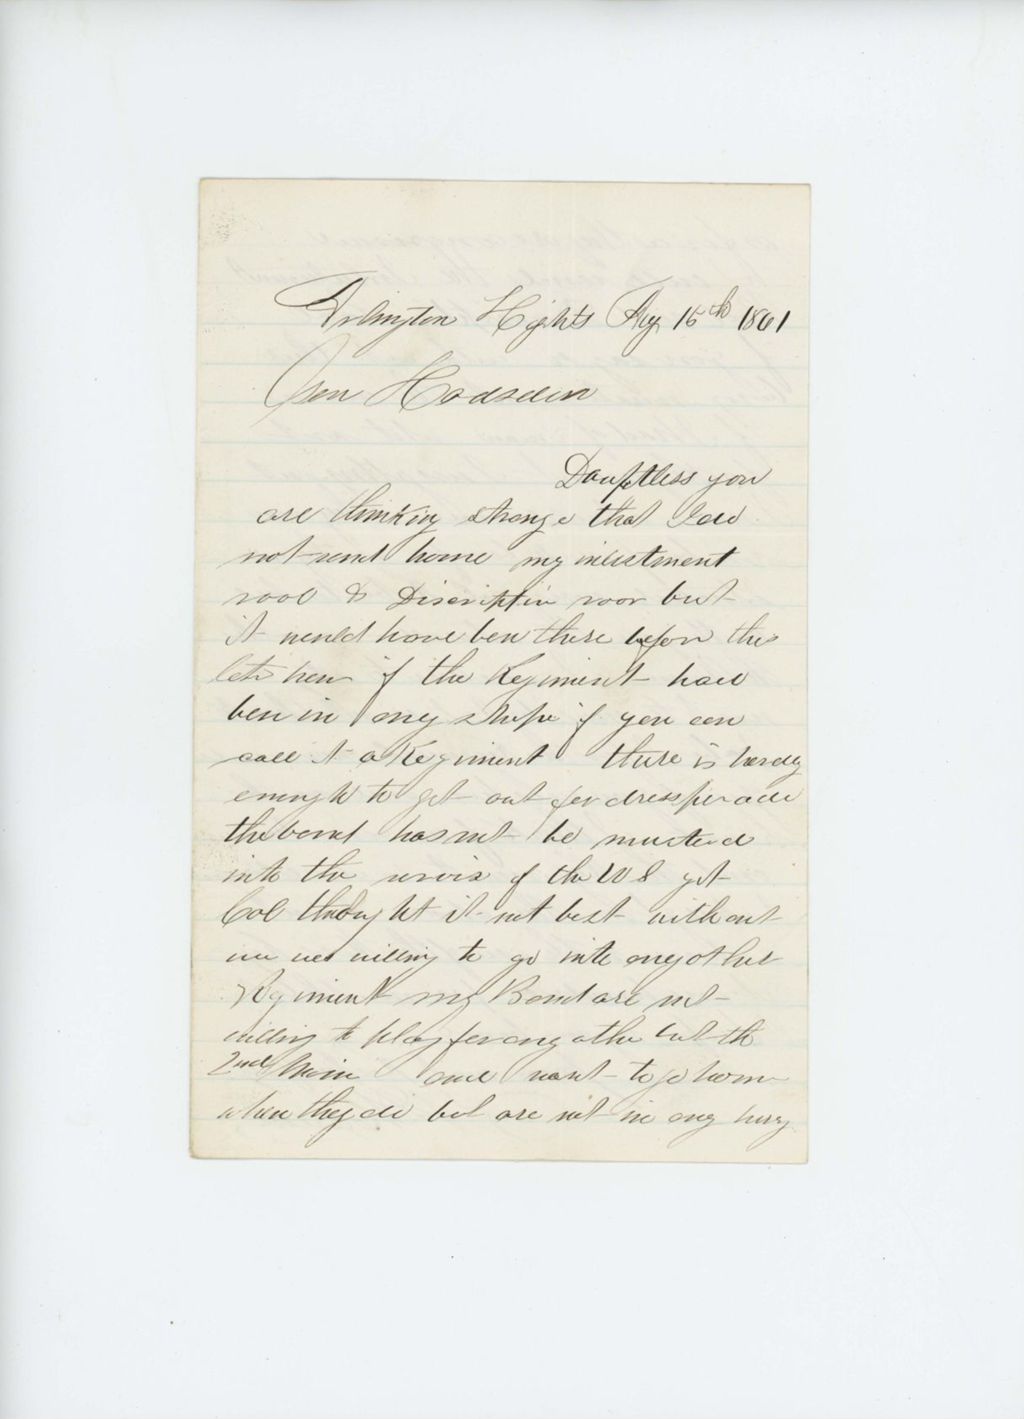 Arlington Hights Aug 15th 1861
Gen Hodsden
Douptless you
are thinking strange that I do
not send home my inlistment
rool & Discriptiv roor but
it would have ben there before this
late hour if the Regiment had
ben in any shape if you can
call it a Regiment there is hardy
enought to get out for dressperade
the band has not be musterd
into the servis of the US yet
Col thought it not best without
we wer willing to go into any other
Regiment my Band are not
willing to play for any other but the
2nd Main and want to go home
when they do but are not in any hury